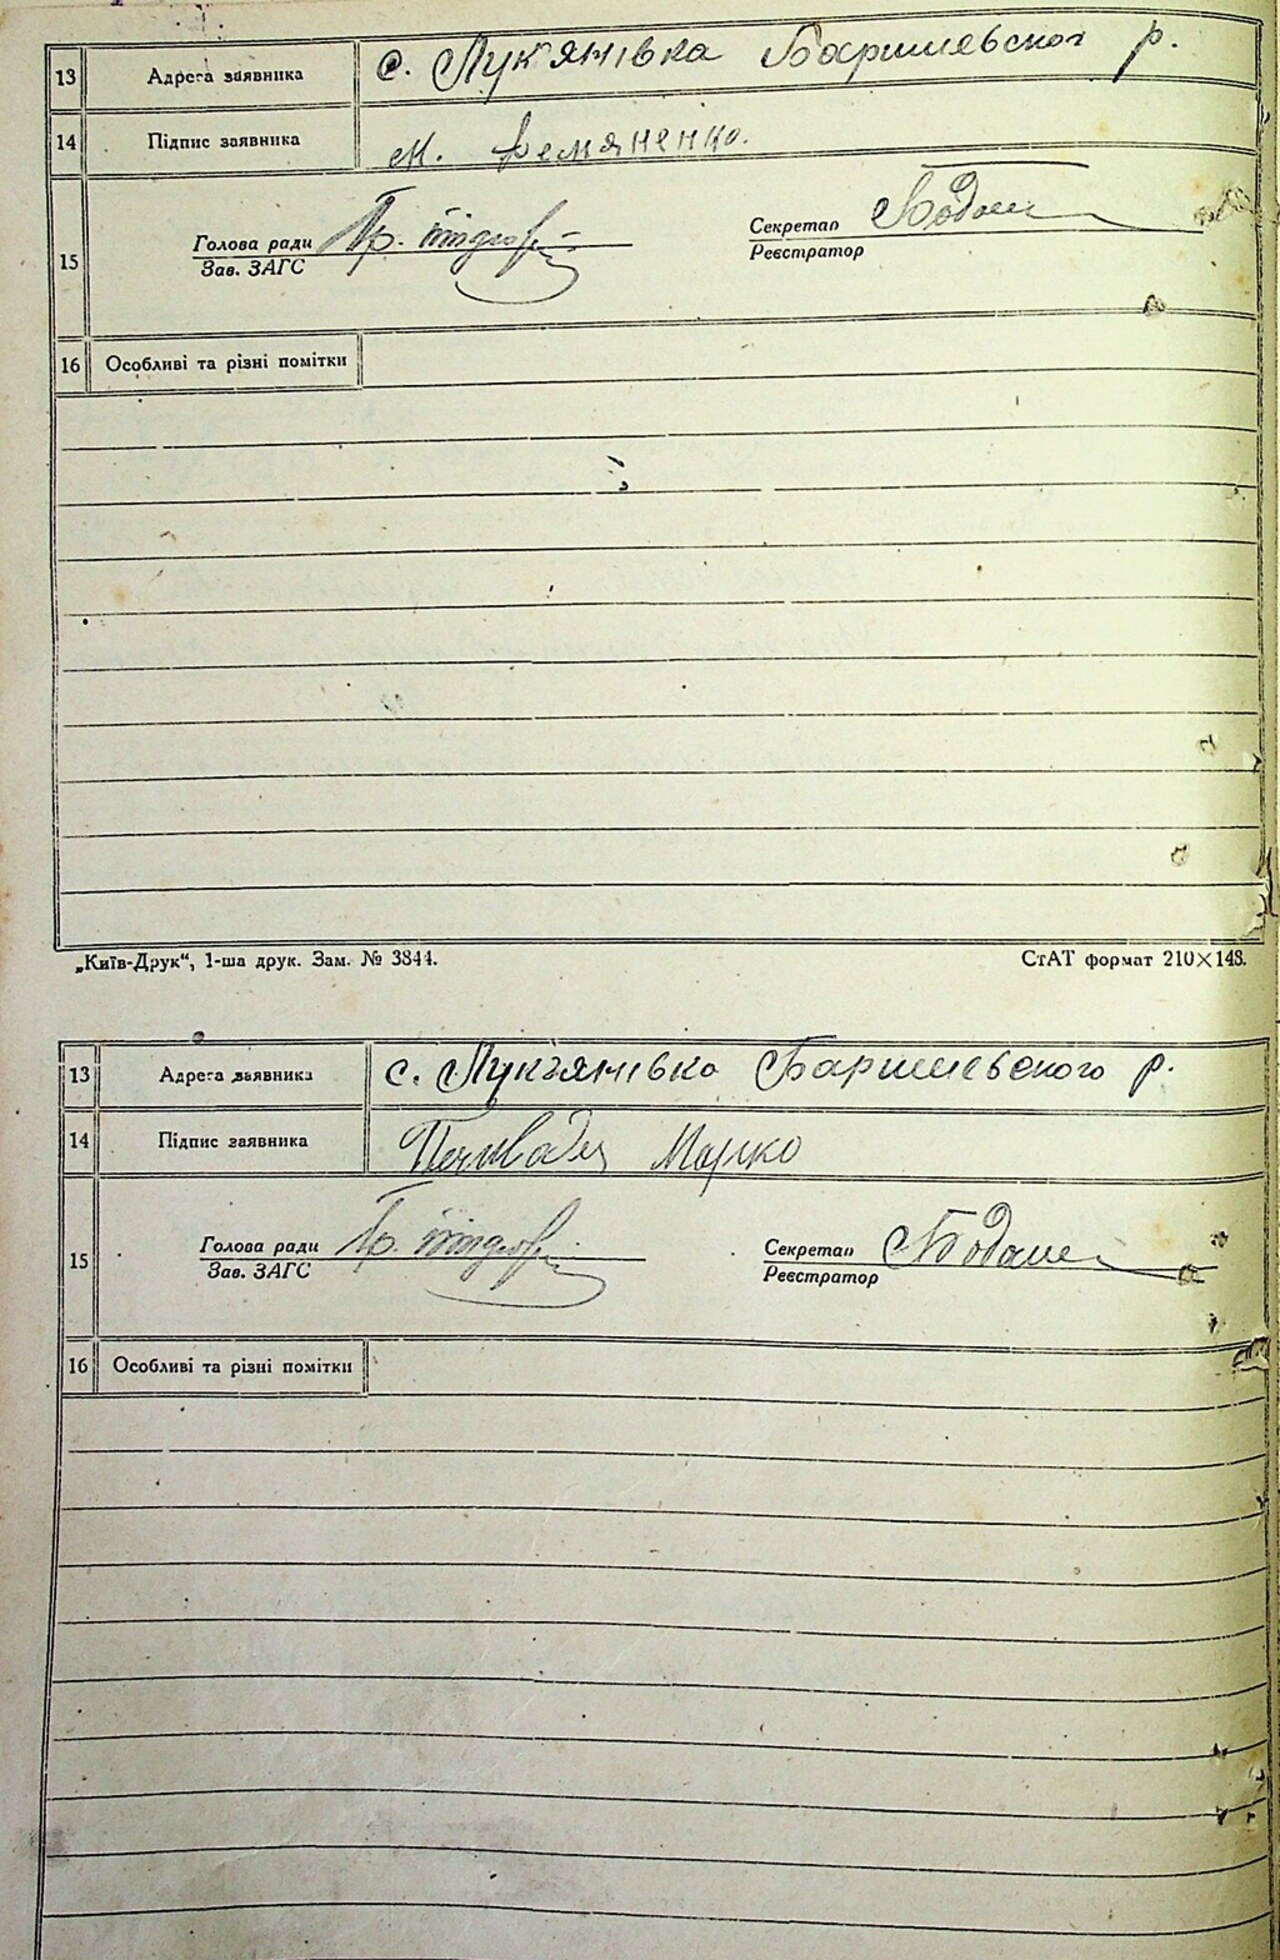 13 Адреса заявника с. Лук'янівка Баришевског р.
14 Підпис заявника М.
15 Голова ради Секретар
Зав. ЗАГС Реєстратор
16 Особливі та різні помітки
„Київ-Друк“, 1-ша друк. Зам. № 3844. СтАТ формат 210×148.
13 Адреса заявника с. Лук'янівка Баришевського р.
14 Підпис заявника Марко
15 Голова ради Секретар
Зав. ЗАГС Реєстратор
16 Особливі та різні помітки